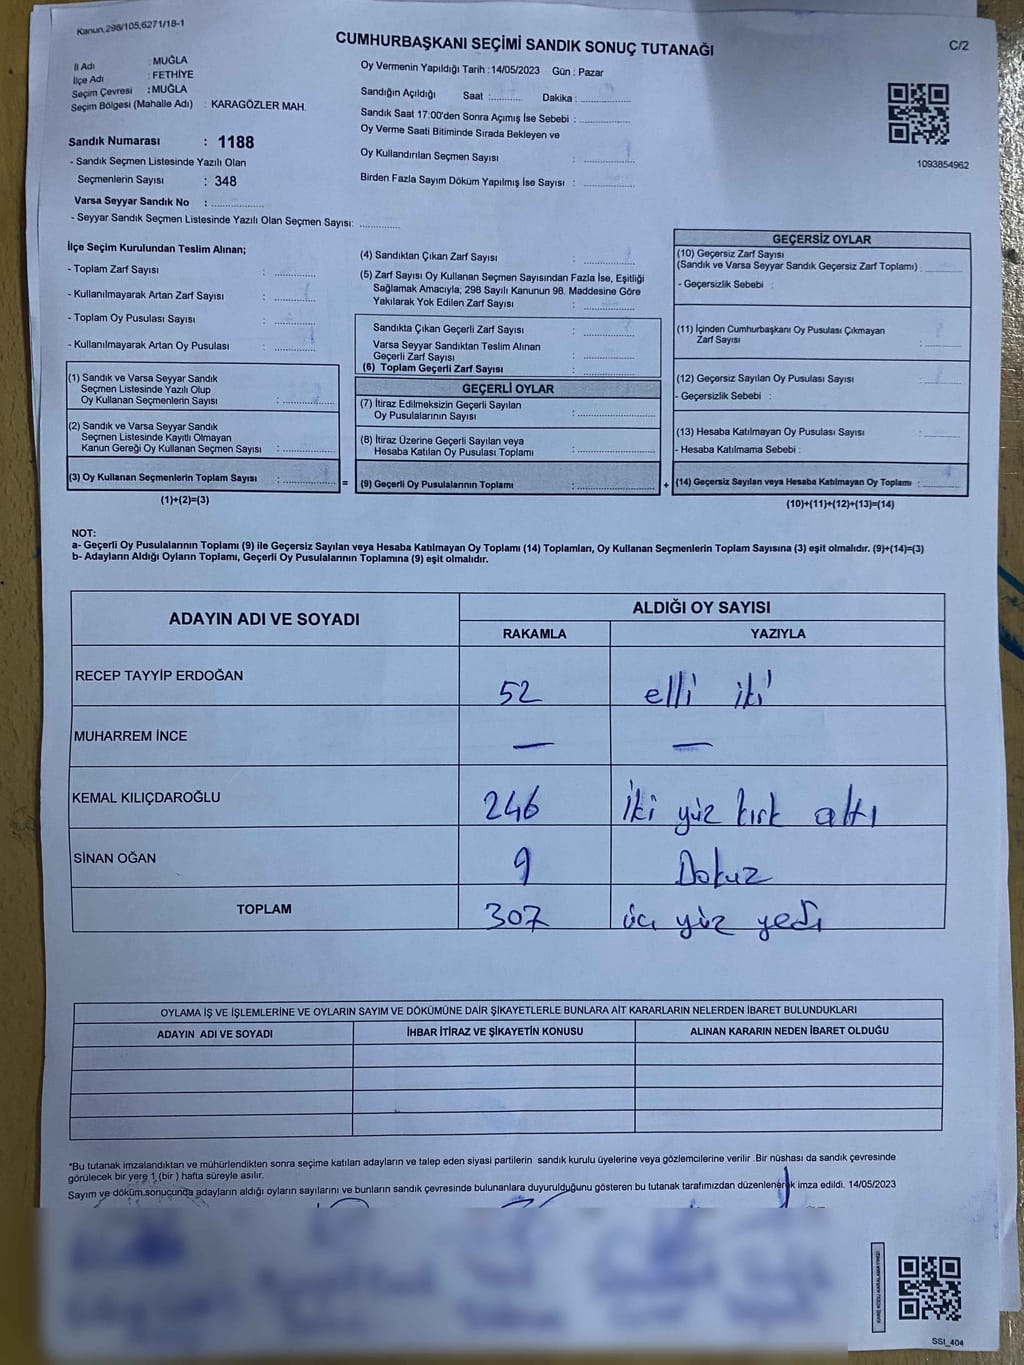 Kanun.298/105,6271/18-1
CUMHURBAŞKANI SEÇİMİ SANDIK SONUÇ TUTANAĞI
C/2
İl Adı : MUĞLA
İlçe Adı : FETHİYE
Seçim Çevresi : MUĞLA
Seçim Bölgesi (Mahalle Adı) : KARAGÖZLER MAH.
Sandık Numarası : 1188
- Sandık Seçmen Listesinde Yazılı Olan
Seçmenlerin Sayısı : 348
Varsa Seyyar Sandık No : ..............
- Seyyar Sandık Seçmen Listesinde Yazılı Olan Seçmen Sayısı: ............
Oy Vermenin Yapıldığı Tarih : 14/05/2023 Gün : Pazar
Sandığın Açıldığı Saat :.......... Dakika : ...............
Sandık Saat 17:00'den Sonra Açımış İse Sebebi : ...............
Oy Verme Saati Bitiminde Sırada Bekleyen ve
Oy Kullandırılan Seçmen Sayısı : ...............
Birden Fazla Sayım Döküm Yapılmış İse Sayısı : ...............
1093854962
İlçe Seçim Kurulundan Teslim Alınan;
- Toplam Zarf Sayısı : ............
- Kullanılmayarak Artan Zarf Sayısı : ............
- Toplam Oy Pusulası Sayısı : ............
- Kullanılmayarak Artan Oy Pusulası : ............
(1) Sandık ve Varsa Seyyar Sandık
Seçmen Listesinde Yazılı Olup
Oy Kullanan Seçmenlerin Sayısı : ...............
(2) Sandık ve Varsa Seyyar Sandık
Seçmen Listesinde Kayıtlı Olmayan
Kanun Gereği Oy Kullanan Seçmen Sayısı : ...............
(3) Oy Kullanan Seçmenlerin Toplam Sayısı : ...............
(1)+(2)=(3)
=
(4) Sandıktan Çıkan Zarf Sayısı : ...............
(5) Zarf Sayısı Oy Kullanan Seçmen Sayısından Fazla İse, Eşitliği
Sağlamak Amacıyla; 298 Sayılı Kanunun 98. Maddesine Göre
Yakılarak Yok Edilen Zarf Sayısı : ...............
Sandıkta Çıkan Geçerli Zarf Sayısı : ...............
Varsa Seyyar Sandıktan Teslim Alınan
Geçerli Zarf Sayısı : ...............
(6) Toplam Geçerli Zarf Sayısı : ...............
GEÇERLİ OYLAR
(7) İtiraz Edilmeksizin Geçerli Sayılan
Oy Pusulalarının Sayısı : ...............
(8) İtiraz Üzerine Geçerli Sayılan veya
Hesaba Katılan Oy Pusulası Toplamı : ...............
(9) Geçerli Oy Pusulalarının Toplamı : ...............
+
GEÇERSİZ OYLAR
(10) Geçersiz Zarf Sayısı
(Sandık ve Varsa Seyyar Sandık Geçersiz Zarf Toplamı) : ............
- Geçersizlik Sebebi :
(11) İçinden Cumhurbaşkanı Oy Pusulası Çıkmayan
Zarf Sayısı : ............
(12) Geçersiz Sayılan Oy Pusulası Sayısı : ............
- Geçersizlik Sebebi :
(13) Hesaba Katılmayan Oy Pusulası Sayısı : ............
- Hesaba Katılmama Sebebi :
(14) Geçersiz Sayılan veya Hesaba Katılmayan Oy Toplamı : ............
(10)+(11)+(12)+(13)=(14)
NOT:
a- Geçerli Oy Pusulalarının Toplamı (9) ile Geçersiz Sayılan veya Hesaba Katılmayan Oy Toplamı (14) Toplamları, Oy Kullanan Seçmenlerin Toplam Sayısına (3) eşit olmalıdır. (9)+(14)=(3)
b- Adayların Aldığı Oyların Toplamı, Geçerli Oy Pusulalarının Toplamına (9) eşit olmalıdır.
ADAYIN ADI VE SOYADI ALDIĞI OY SAYISI
RAKAMLA YAZIYLA
RECEP TAYYİP ERDOĞAN 52 elli iki
MUHARREM İNCE — —
KEMAL KILIÇDAROĞLU 246 İki yüz kırk altı
SİNAN OĞAN 9 Dokuz
TOPLAM 307 üç yüz yedi
OYLAMA İŞ VE İŞLEMLERİNE VE OYLARIN SAYIM VE DÖKÜMÜNE DAİR ŞİKAYETLERLE BUNLARA AİT KARARLARIN NELERDEN İBARET BULUNDUKLARI
ADAYIN ADI VE SOYADI İHBAR İTİRAZ VE ŞİKAYETİN KONUSU ALINAN KARARIN NEDEN İBARET OLDUĞU
*Bu tutanak imzalandıktan ve mühürlendikten sonra seçime katılan adayların ve talep eden siyasi partilerin sandık kurulu üyelerine veya gözlemcilerine verilir .Bir nüshası da sandık çevresinde
görülecek bir yere 1 (bir ) hafta süreyle asılır.
Sayım ve döküm sonucunda adayların aldığı oyların sayılarını ve bunların sandık çevresinde bulunanlara duyurulduğunu gösteren bu tutanak tarafımızdan düzenlenerek imza edildi. 14/05/2023
SSI_404